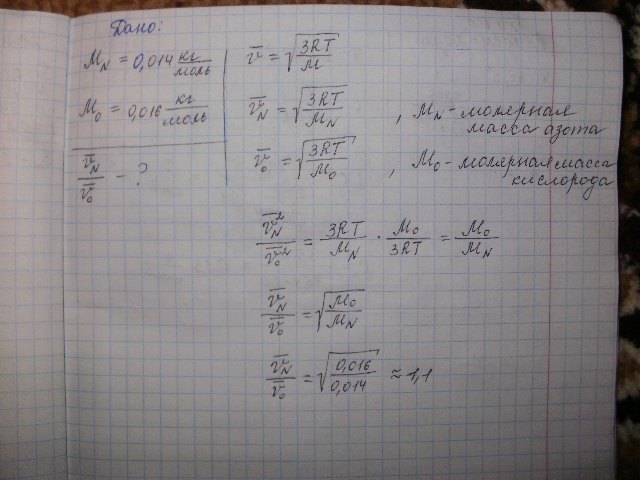 Дано:
M_N = 0,014 кг/моль
M_O = 0,016 кг/моль
v̄_N/v̄_O - ?
v̄ = √(3RT/M)
v̄_N = √(3RT/M_N) , M_N - молярная
масса азота
v̄_O = √(3RT/M_O) , M_O - молярная масса
кислорода
v̄_N²/v̄_O² = 3RT/M_N · M_O/3RT = M_O/M_N
v̄_N/v̄_O = √(M_O/M_N)
v̄_N/v̄_O = √(0,016/0,014) ≈ 1,1